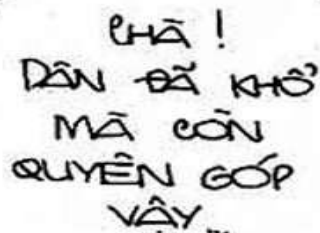 CHÀ !
DÂN ĐÃ KHỔ
MÀ CÒN
QUYÊN GÓP
VẬY...